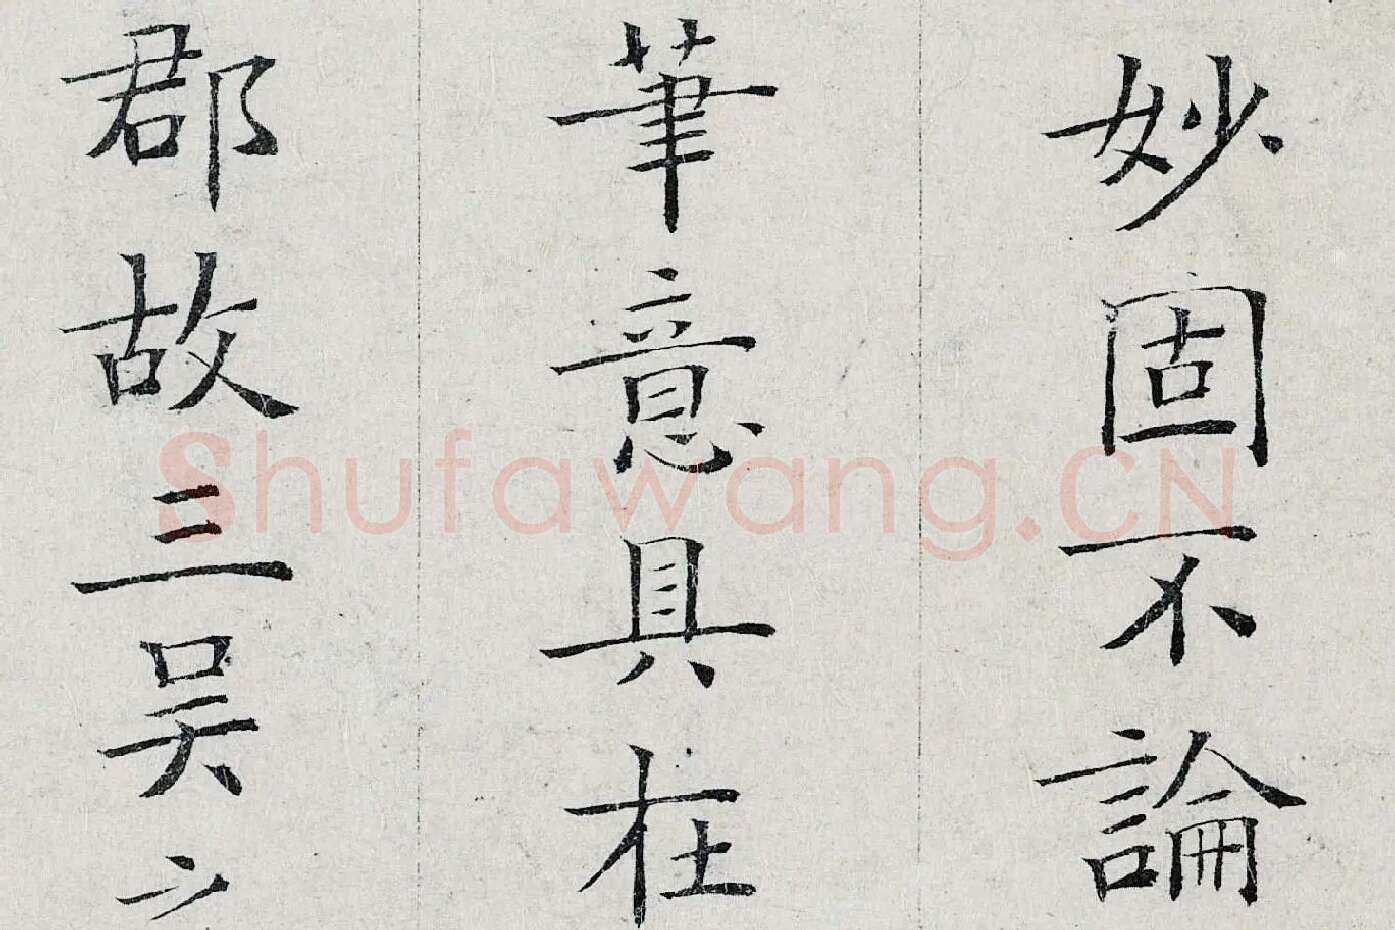 妙固不論
筆意具在
郡故三吴
Shufawang.CN